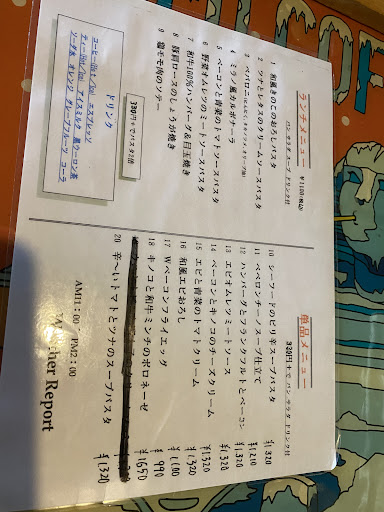 ランチメニュー ¥1100(税込)
パン サラダ スープ ドリンク付
1 和風きのこのおろしパスタ
2 ツナとレタスのクリームソースパスタ
3 ペペロンチーノ
4 ミラノ風カルボナーラ
5 ベーコンと青菜のトマトソースパスタ
6 野菜オムレツのミートソースパスタ
7 和牛100%ハンバーグ&目玉焼き
8 豚肩ロースのしょうが焼き
9 鶏もも肉のソテー
330円+でパスタ2倍
ドリンク
コーヒー(Hot / Ice) エスプレッソ
ティー(Hot / Ice) アイスミルク 黒ウーロン茶
ソーダ水 オレンジ グレープフルーツ コーラ
単品メニュー
330円+で パン サラダ ドリンク付
10 シーフードのピリ辛スープパスタ ¥1,320
11 ペペロンチーノスープ仕立て ¥1210
12 ハンバーグとフランクフルトとベーコン ¥1,320
13 エビオムレツミートソース ¥1,320
14 ベーコンとキノコのチーズクリーム
15 エビと青菜のトマトクリーム ¥1320
16 和風エビおろし ¥1,320
17 Wベーコンフライエッグ ¥1,100
18 キノコと和牛ミンチのボロネーゼ ¥990
¥1650
20 辛〜いトマトとツナのスープパスタ ¥1,320
AM11:00 / PM2:00
Weather Report